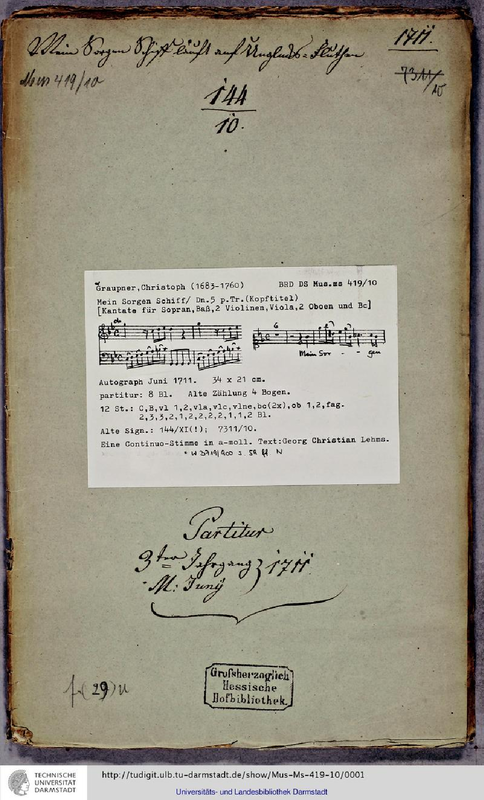 Mein Sorgen Schiff läufft auf Unglücks-Fluthen
1711.
Mus 419/10
7311/10
144
10.
Graupner,Christoph (1683-1760) BRD DS Mus.ms 419/10
Mein Sorgen Schiff/ Dn.5 p.Tr.(Kopftitel)
[Kantate für Sopran,Baß,2 Violinen,Viola,2 Oboen und Bc]
ob
6
Mein Sor - - gen
Autograph Juni 1711. 34 x 21 cm.
partitur: 8 Bl. Alte Zählung 4 Bogen.
12 St.: C,B,vl 1,2,vla,vlc,vlne,bc(2x),ob 1,2,fag.
2,3,3,2,1,2,2,2,2,1,1,2 Bl.
Alte Sign.: 144/XI(!); 7311/10.
Eine Continuo-Stimme in a-moll. Text:Georg Christian Lehms.
Partitur
3ter Jahrgang 1711
M: Junij
(29)
Großherzoglich
Hessische
Hofbibliothek.
TECHNISCHE
UNIVERSITÄT
DARMSTADT
http://tudigit.ulb.tu-darmstadt.de/show/Mus-Ms-419-10/0001
Universitäts- und Landesbibliothek Darmstadt